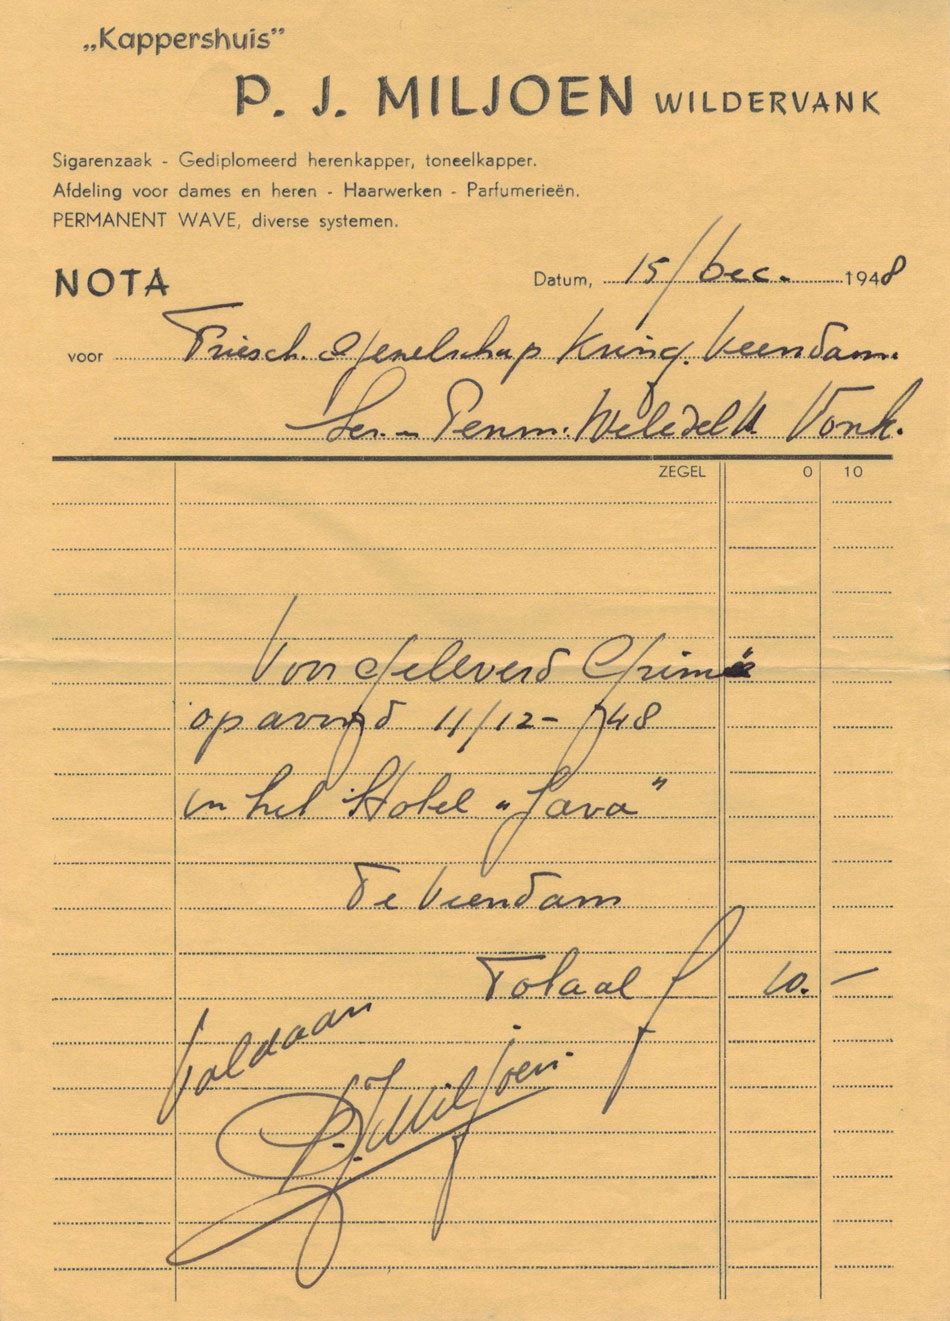 „Kappershuis”
P. J. MILJOEN WILDERVANK
Sigarenzaak - Gediplomeerd herenkapper, toneelkapper.
Afdeling voor dames en heren - Haarwerken - Parfumerieën.
PERMANENT WAVE, diverse systemen.
NOTA
Datum, 15/Dec. 1948
voor Friesch. Genelschap Kring. Veendam.
Penm. WelEdel H Vonk.
ZEGEL 0 10
Voor geleverd Grime
op avond 11/12 - '48
in het Hotel „Java”
Te Veendam
Totaal f 10.—
Voldaan
P.J. Miljoen